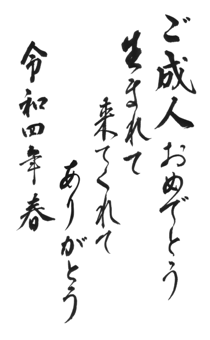 ご成人おめでとう
生まれて
来てくれて
ありがとう
令和四年春